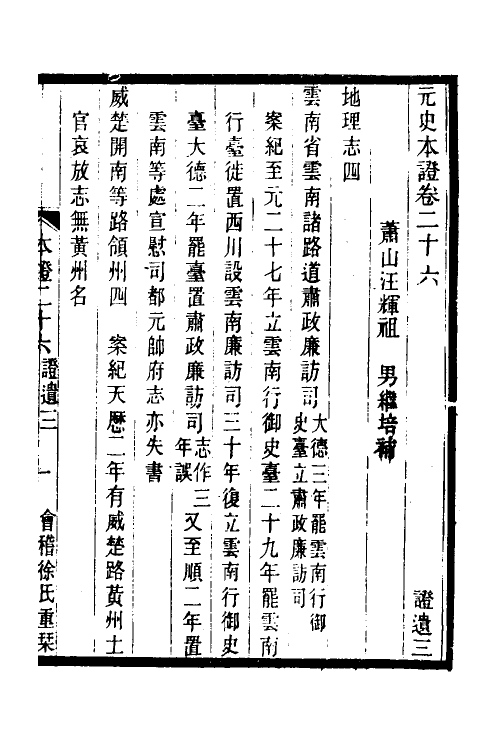 元史本證卷二十六　證遺三
蕭山汪輝祖　男繼培補
地理志四
雲南省雲南諸路道肅政廉訪司大德三年罷雲南行御史臺立肅政廉訪司
案紀至元二十七年立雲南行御史臺二十九年罷雲南
行臺徙置西川設雲南廉訪司三十年復立雲南行御史
臺大德二年罷臺置肅政廉訪司志作三年誤又至順二年置
雲南等處宣慰司都元帥府志亦失書
威楚開南等路領州四　案紀天曆二年有威楚路黃州土
官哀放志無黃州名
本證二十六證遺三　一　會稽徐氏重栞